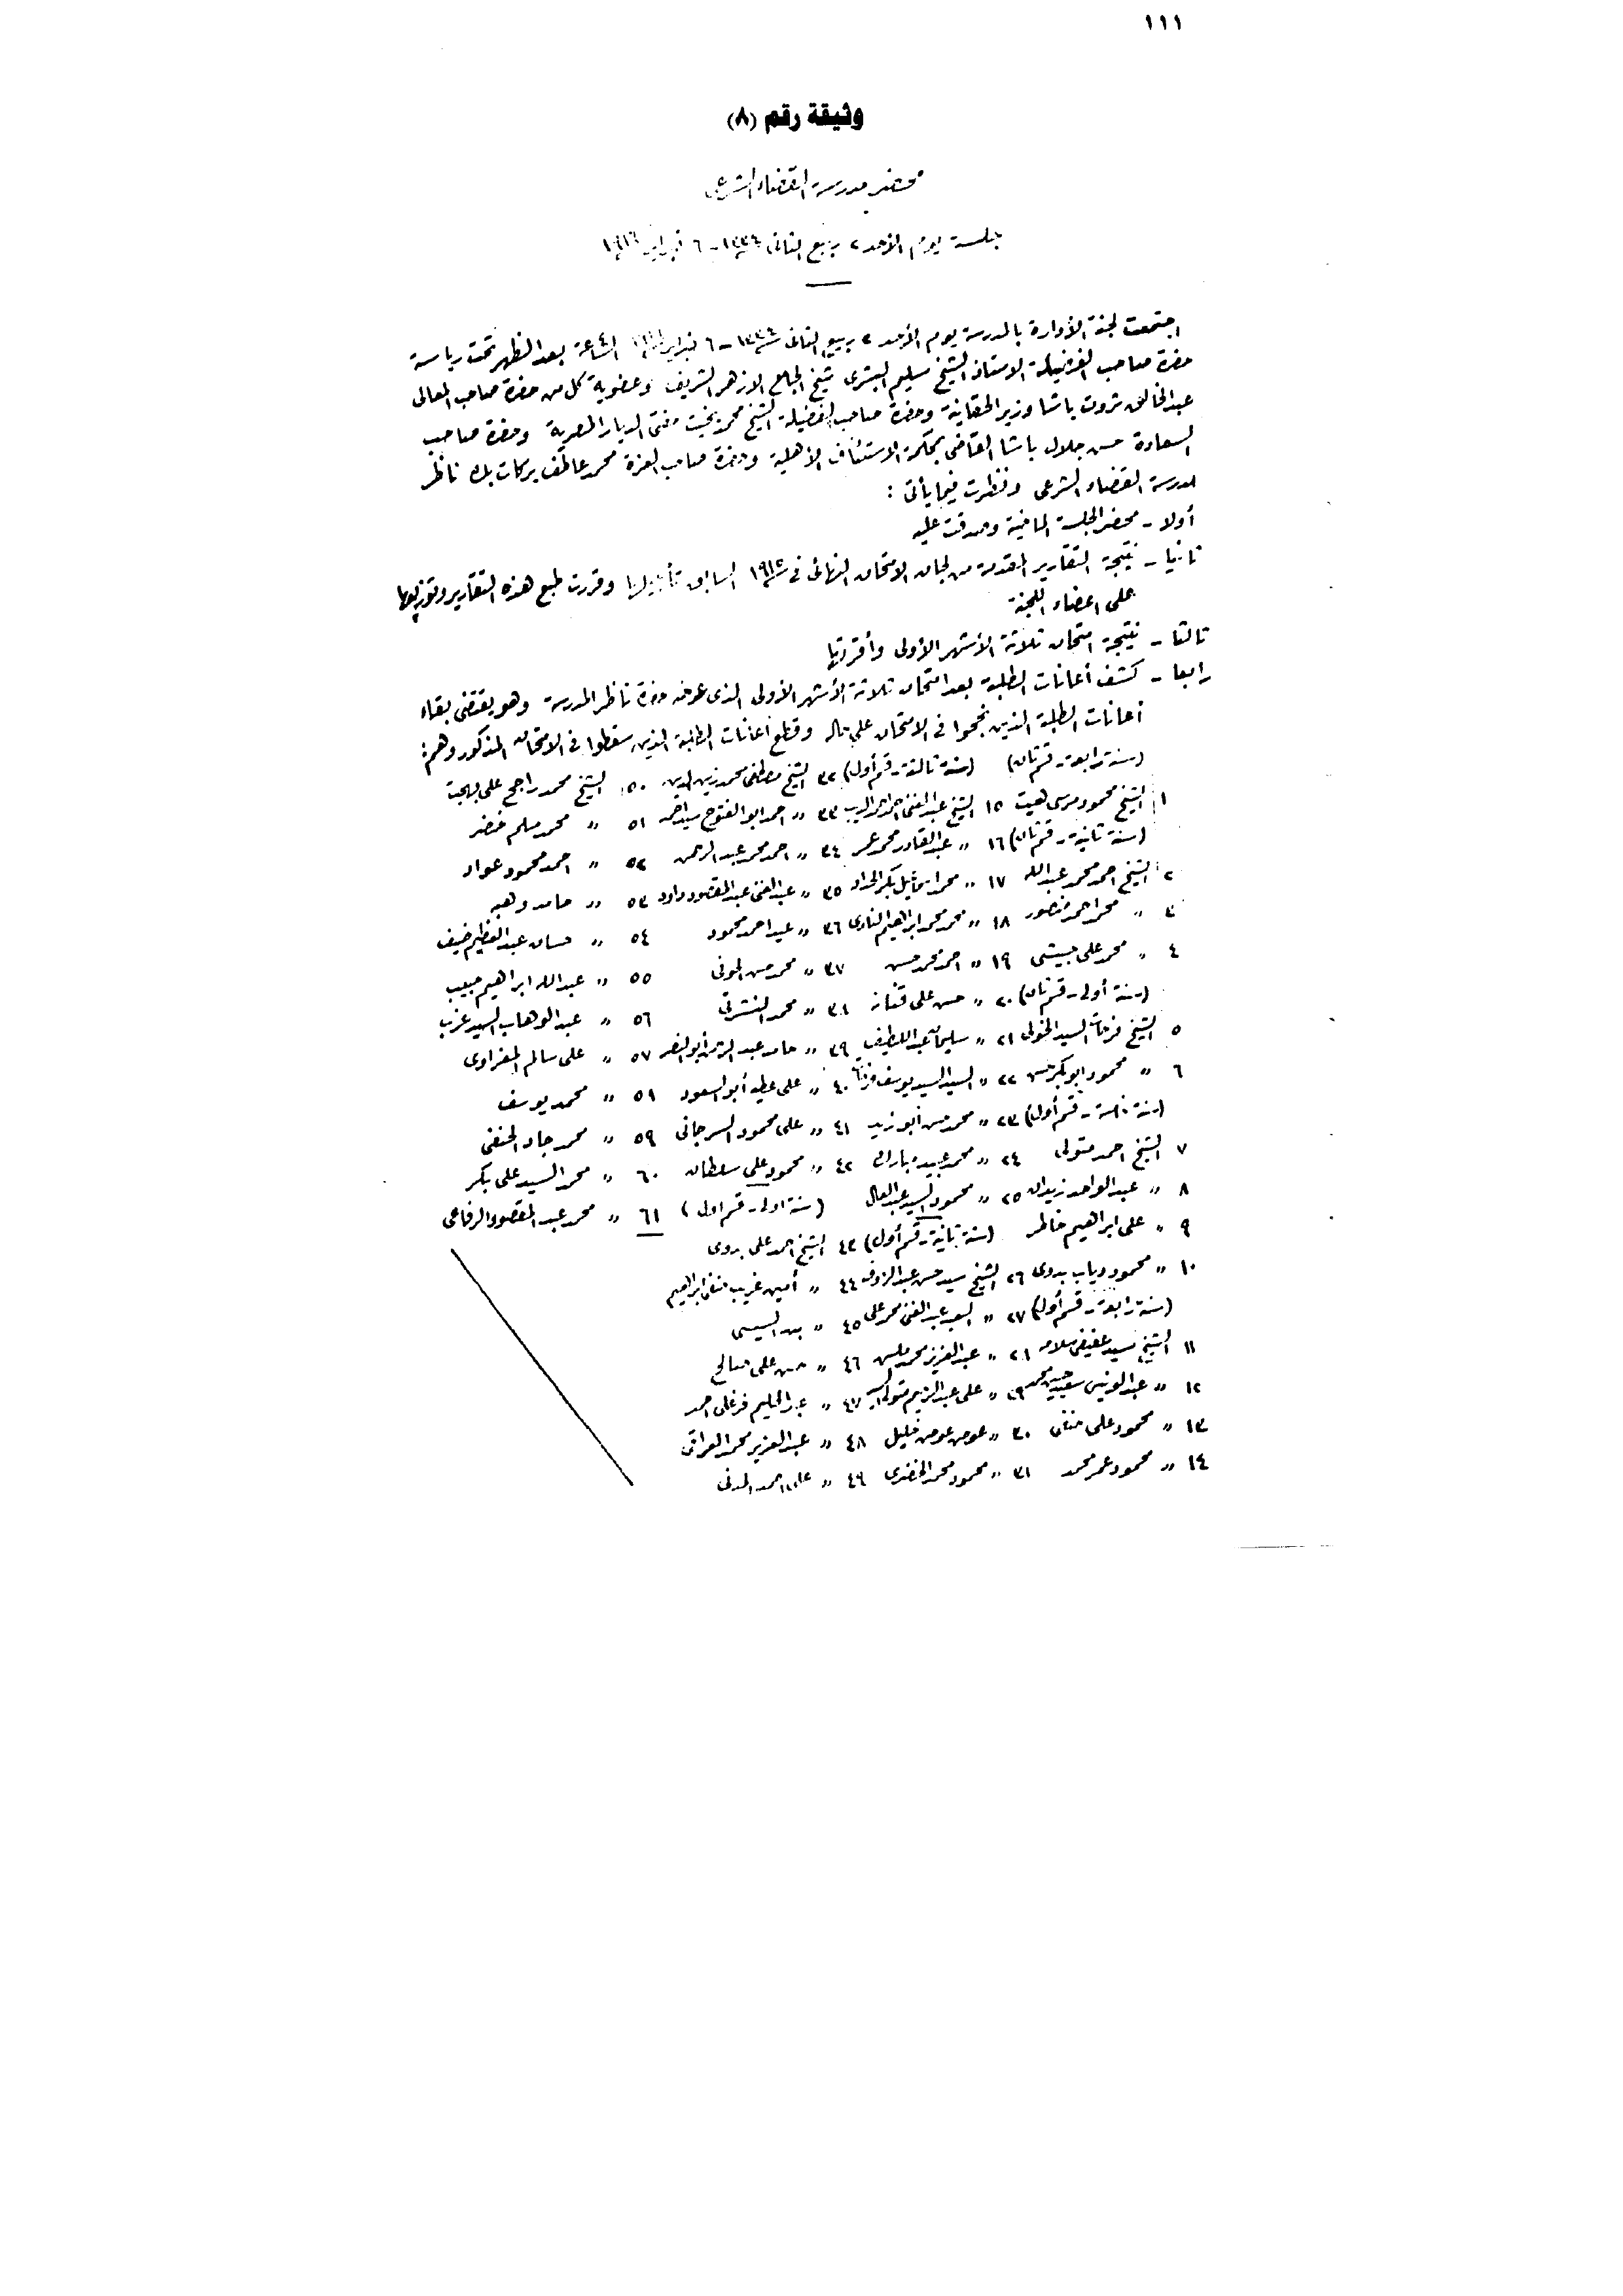 ١١١
وثيقة رقم (٨)
محضر مدرسة القضاء الشرعى
جلسة يوم الأحد ٢ ربيع الثانى ١٣٣٤ - ٦ فبراير ١٩١٦
اجتمعت لجنة الأدارة بالمدرسة يوم الأحد ٢ ربيع الثانى ١٣٣٤ - ٦ فبراير الساعة ٤ بعد الظهر تحت رياسة
حضرة صاحب الفضيلة الاستاذ الشيخ سليم البشرى شيخ الجامع الازهر الشريف وعضوية كل من حضرة صاحب المعالى
عبد الخالق ثروت باشا وزير الحقانية وحضرة صاحب الفضيلة الشيخ محمد بخيت مفتى الديار المصرية وحضرة صاحب
السعادة حسن جلال باشا القاضى بمحكمة الاستئناف الأهلية وحضرة صاحب العزة محمد عاطف بركات بك ناظر
مدرسة القضاء الشرعى ونظرت فيما يأتى :
أولا - محضر الجلسة الماضية وصدقت عليه
ثانيا - نتيجة التقارير المقدمة من لجان الامتحان النهائى فى ١٩١٥ السابق تأجيلها وقررت طبع هذه التقارير وتوزيعها
على اعضاء اللجنة
ثالثا - نتيجة امتحان ثلاثة الأشهر الأولى وأقرتها
رابعا - كشف أعانات الطلبة بعد امتحان ثلاثة الأشهر الأولى الذى عرضه حضرة ناظر المدرسة وهو يقتضى بقاء
أعانات الطلبة الذين نجحوا فى الامتحان على حاله وقطع أعانات الطلبة الذين سقطوا فى الامتحان المذكور وهم :
(سنة رابعة - قسم ثان) (سنة ثالثة - قسم أول) ٣٢ الشيخ مصطفى محمد زين الدين ٥٠ الشيخ محمد راجح على بهجت
١ الشيخ محمود مرسى هيت ١٥ الشيخ عبد الغنى احمد الديب ٣٣ " احمد ابو الفتوح سيد احمد ٥١ " محمد مسلم خضر
(سنة ثانية - قسم ثان) ١٦ " عبد القادر محمد عمر ٣٤ " احمد محمد عبد الرحمن ٥٢ " احمد محمود عواد
٢ الشيخ احمد محمد عبد الله ١٧ " محمد اسماعيل بكر الحداد ٣٥ " عبد الغنى عبد المقصود داود ٥٣ " حامد وهبه
٣ " محمد احمد منصور ١٨ " محمد محمد ابراهيم النادى ٣٦ " عيد احمد محمود ٥٤ " حسان عبد العظيم ضيف
٤ " محمد على حبيشى ١٩ " احمد محمد حسن ٣٧ " محمد حسن ٥٥ " عبد الله ابراهيم حبيب
(سنة أولى - قسم ثان) ٢٠ " حسن على ٣٨ " محمد النشرتى ٥٦ " عبد الوهاب السيد عزب
٥ الشيخ فرحات السيد الخولى ٢١ " سليمان عبد اللطيف ٣٩ " حامد عبد الرحمن أبو النصر ٥٧ " على سالم المغراوى
٦ " محمود ابو بكر حسن ٢٢ " السيد السيد يوسف ٤٠ " على عطيه أبو السعود ٥٨ " محمد يوسف
(سنة خامسة - قسم أول) ٢٣ " محمد حسن أبو زيد ٤١ " على محمود السرجانى ٥٩ " محمد جاد الحنفى
٧ الشيخ احمد متولى ٢٤ " محمد عبيد مبارك ٤٢ " محمود على سلطان ٦٠ " محمد السيد على بكر
٨ " عبد الواحد زيدان ٢٥ " محمود السيد عبد العال (سنة اولى - قسم اول) ٦١ " محمد عبد المقصود الرفاعى
٩ " على ابراهيم خاطر (سنة ثانية - قسم أول) ٤٣ الشيخ احمد على بدوى
١٠ " محمود دياب بدوى ٢٦ الشيخ سيد حسن عبد الرؤف ٤٤ " أمين غريب حنفى ابراهيم
(سنة رابعة - قسم أول) ٢٧ " السيد عبد الغنى محمد على ٤٥ " السيسى
١١ الشيخ سيد عفيفى سلامه ٢٨ " عبد العزيز محمد ٤٦ " حسن على صالح
١٢ " عبد الونيس سعيد حسين محمد ٢٩ " على عبد الرحيم متولى ٤٧ " عبد الحليم فرغلى احمد
١٣ " محمود على حنفى ٣٠ " عوض عوض خليل ٤٨ " عبد العزيز محمد العراقى
١٤ " محمود عمر محمد ٣١ " محمود محمد الخضرى ٤٩ " احمد المدنى